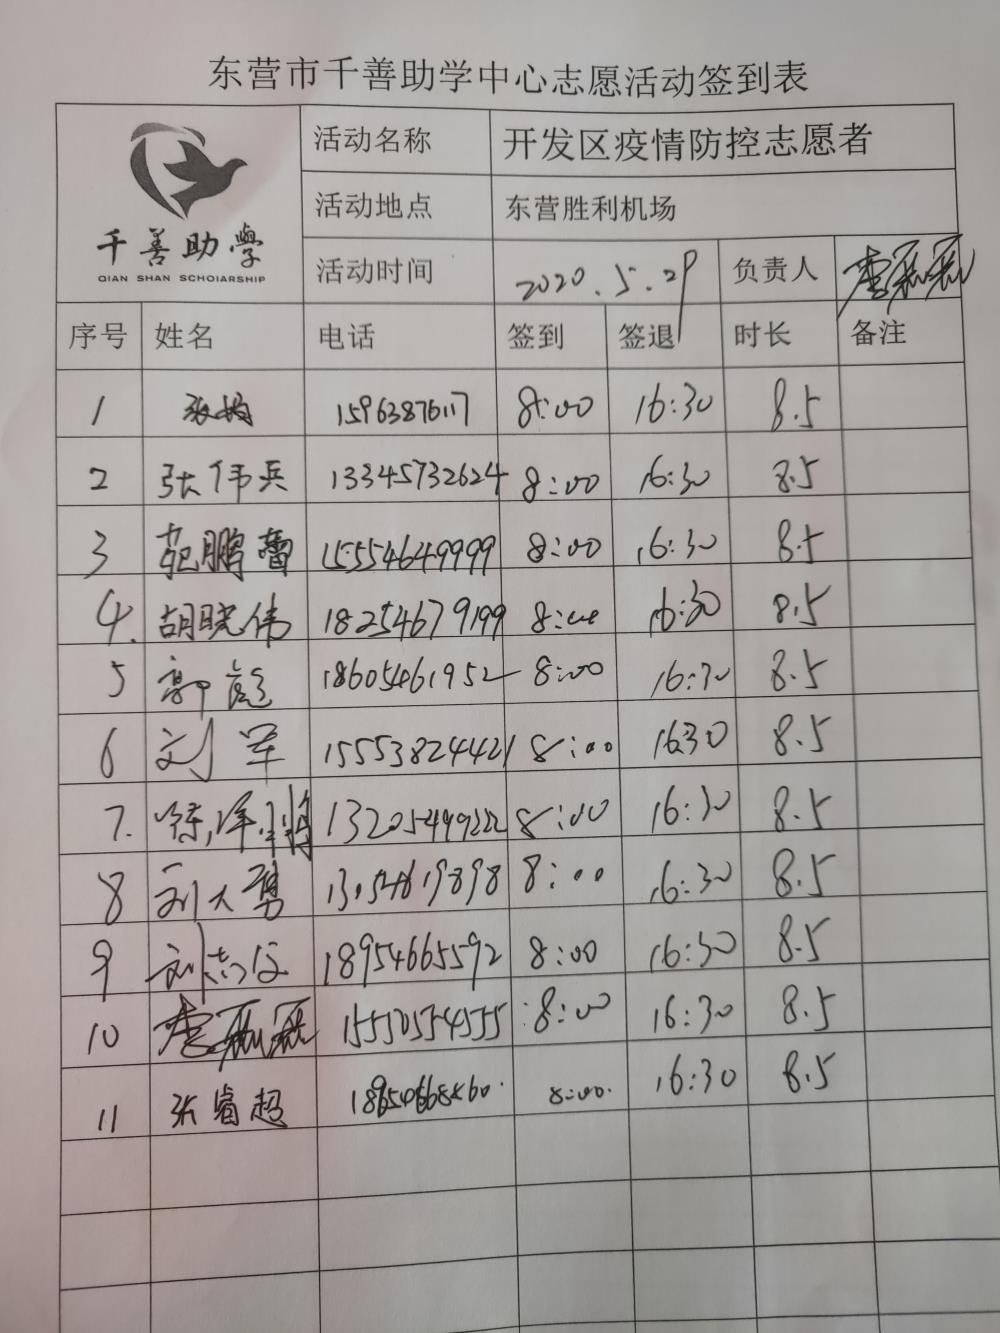 东营市千善助学中心志愿活动签到表
千善助學
QIAN SHAN SCHOIARSHIP
活动名称 开发区疫情防控志愿者
活动地点 东营胜利机场
活动时间 2020.5.29 负责人
序号 姓名 电话 签到 签退 时长 备注
1 15963876117 8:00 16:30 8.5
2 张伟兵 13345732624 8:00 16:30 8.5
3 苑鹏蕾 15554649999 8:00 16:30 8.5
4. 胡晓伟 18254679199 8:00 16:30 8.5
5 郭彪 18605461952 8:00 16:30 8.5
6 刘军 15553824421 8:00 1630 8.5
7. 13205499222 8:00 16:30 8.5
8 刘大勇 13054619898 8:00 16:30 8.5
9 18954665592 8:00 16:30 8.5
10 8:00 16:30 8.5
11 张睿超 8:00. 16:30 8.5